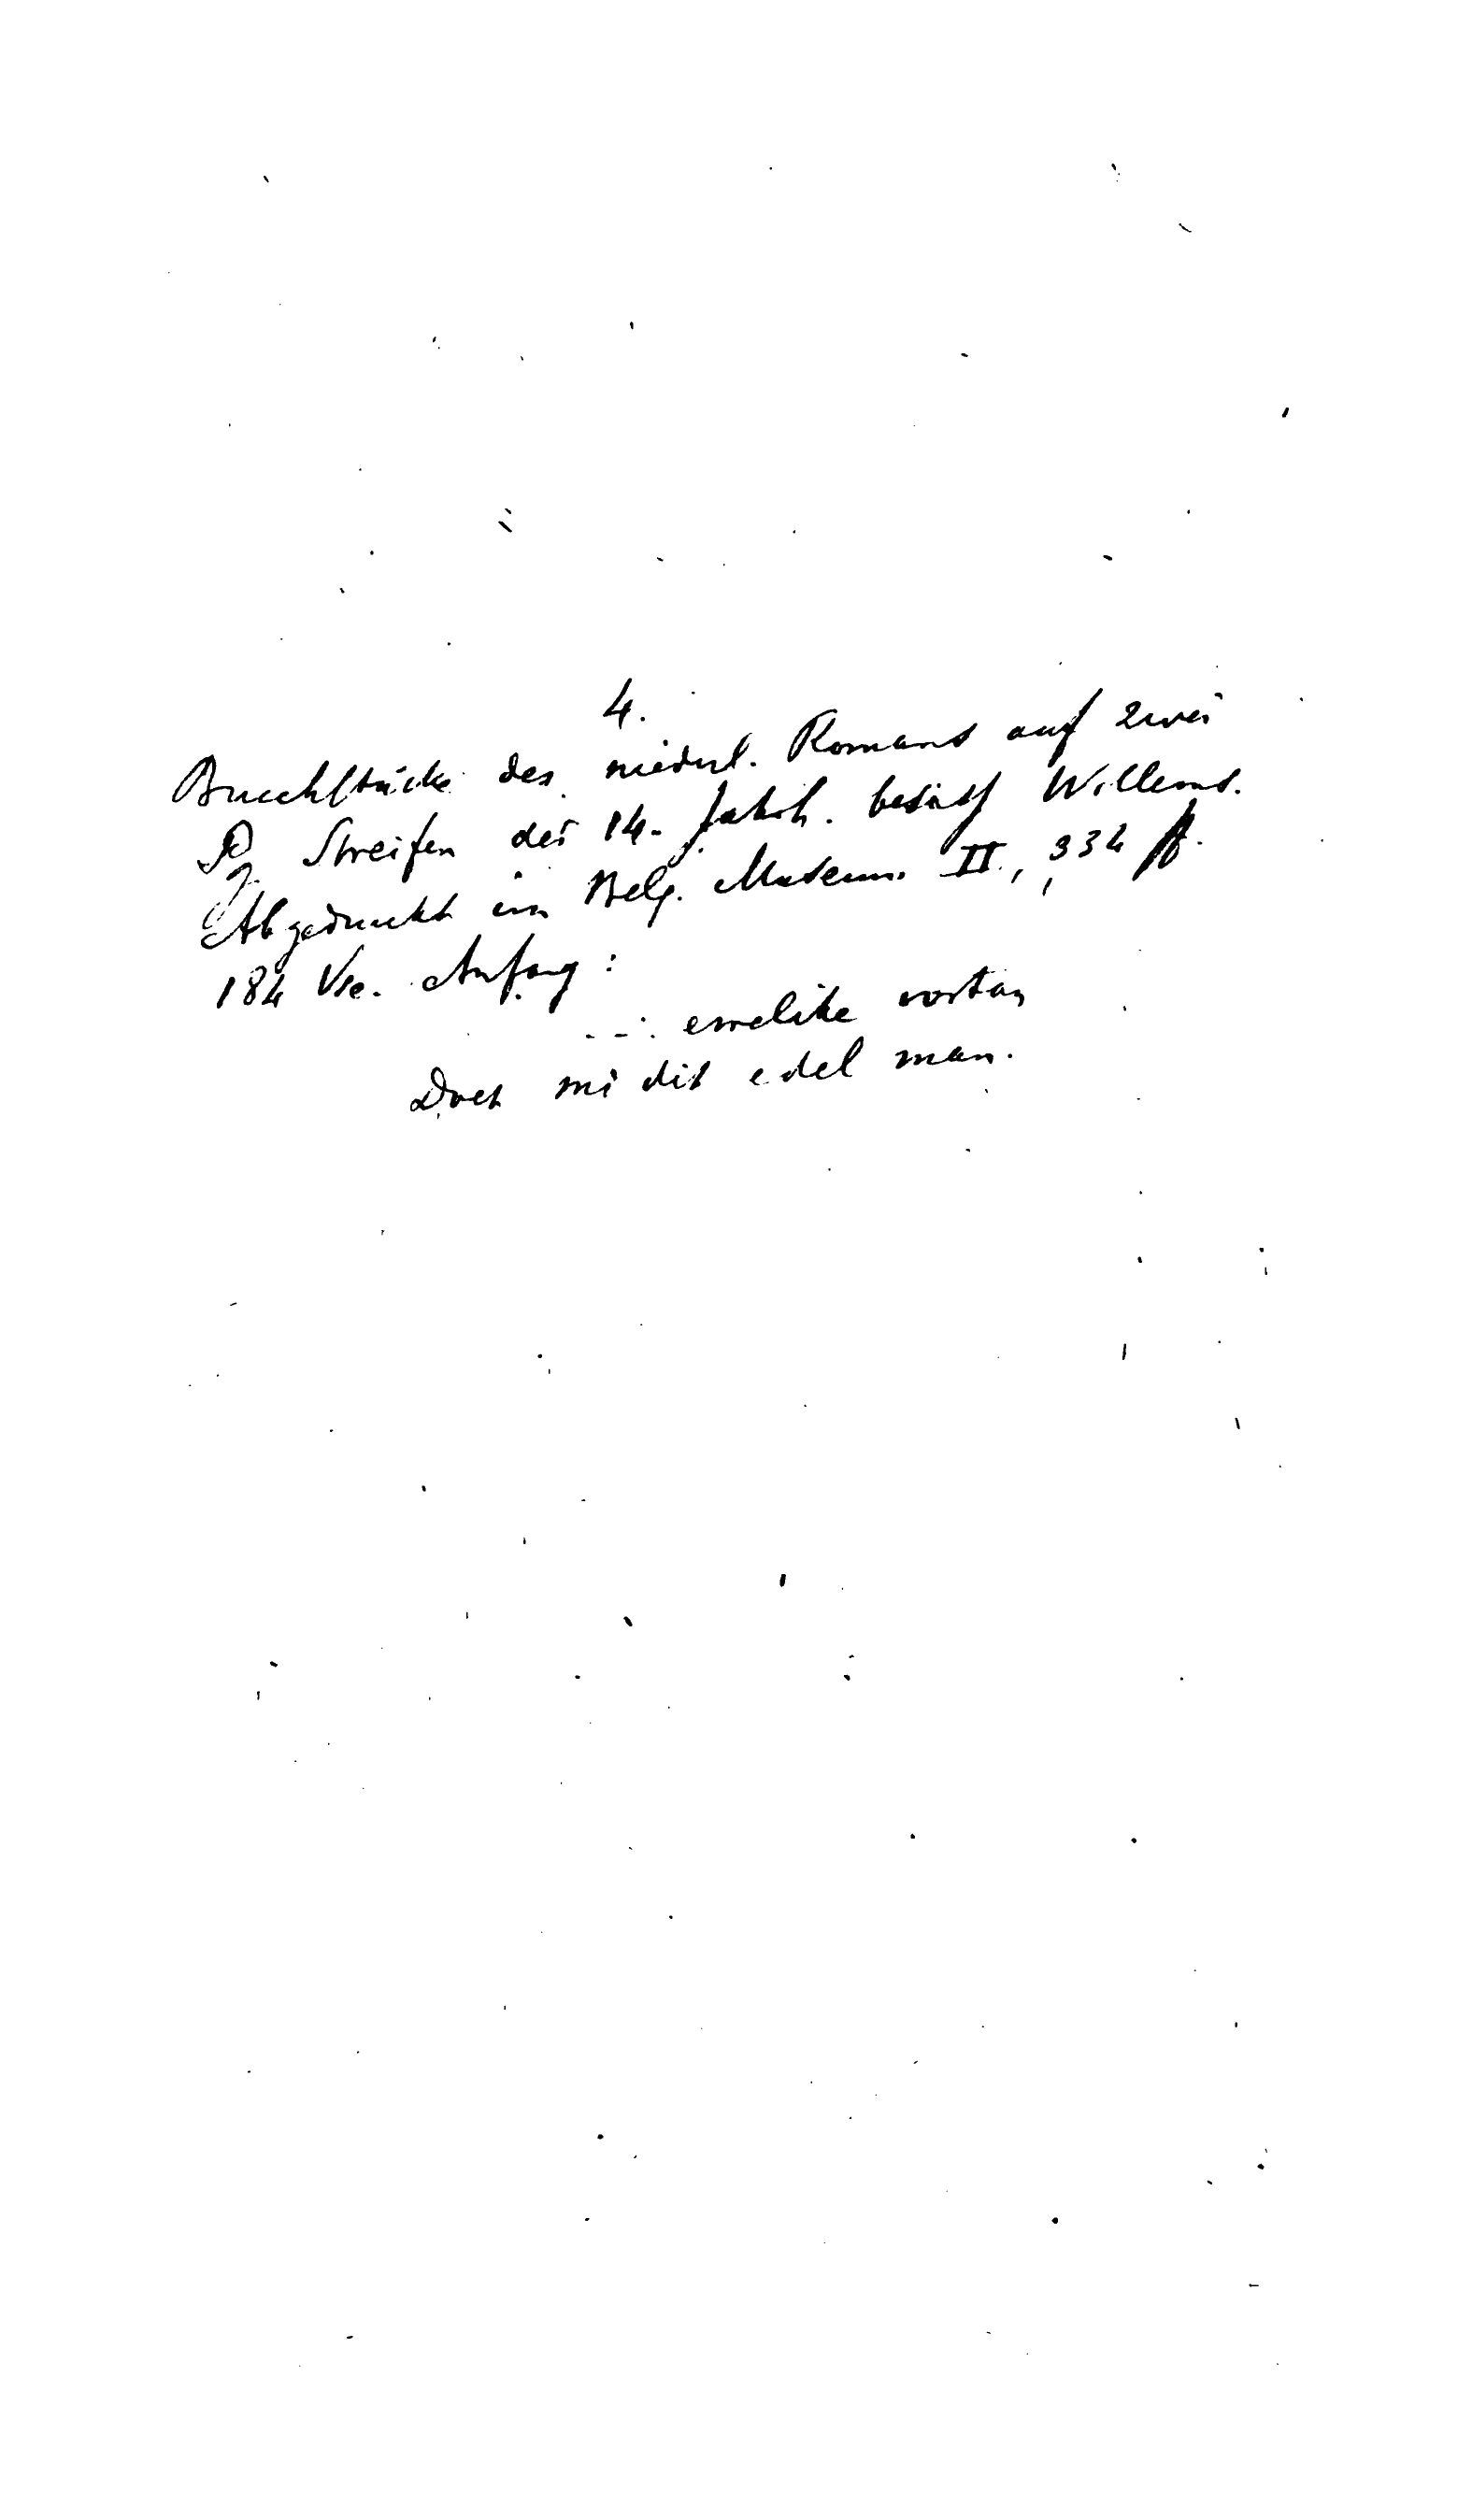 4.
Bruchstücke des niederl. Romans auf zwei
Streifen des 14. Jahrh. besass Willems.
Abgedruckt im Belg. Museum II, 334 ff.
184 Vse. Anfang:
---: ewelike vortan
Doet mi dit edel man.